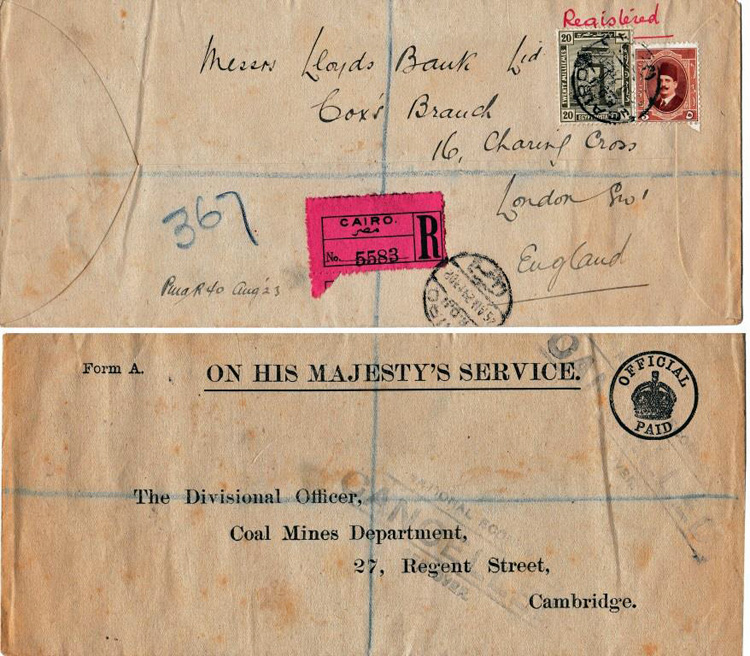 Registered
Messrs Lloyds Bank Ltd
Cox's Branch
16, Charing Cross
London SW1
England
20 20
TWENTY MILLIEMES
20 20
٥
367
CAIRO.
مصر
No. 5583
R
Aug 23
CAIRO
Form A.
ON HIS MAJESTY'S SERVICE.
OFFICIAL
PAID
The Divisional Officer,
Coal Mines Department,
27, Regent Street,
Cambridge.
NATIONAL ECO